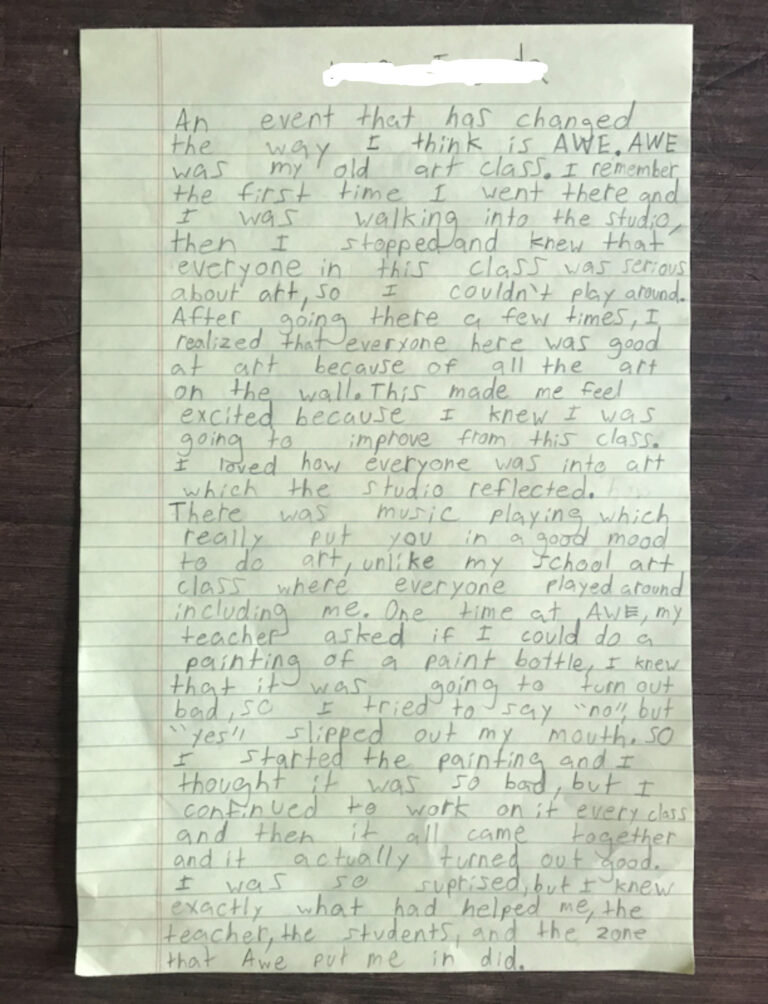 An event that has changed
the way I think is AWE. AWE
was my old art class. I remember
the first time I went there and
I was walking into the studio,
then I stopped and knew that
everyone in this class was serious
about art, so I couldn't play around.
After going there a few times, I
realized that everyone here was good
at art because of all the art
on the wall. This made me feel
excited because I knew I was
going to improve from this class.
I loved how everyone was into art
which the studio reflected.
There was music playing which
really put you in a good mood
to do art, unlike my school art
class where everyone played around
including me. One time at AWE, my
teacher asked if I could do a
painting of a paint bottle, I knew
that it was going to turn out
bad, so I tried to say "no", but
"yes" slipped out my mouth. SO
I started the painting and I
thought it was so bad, but I
continued to work on it every class
and then it all came together
and it actually turned out good.
I was so suprised, but I knew
exactly what had helped me, the
teacher, the students, and the zone
that Awe put me in did.